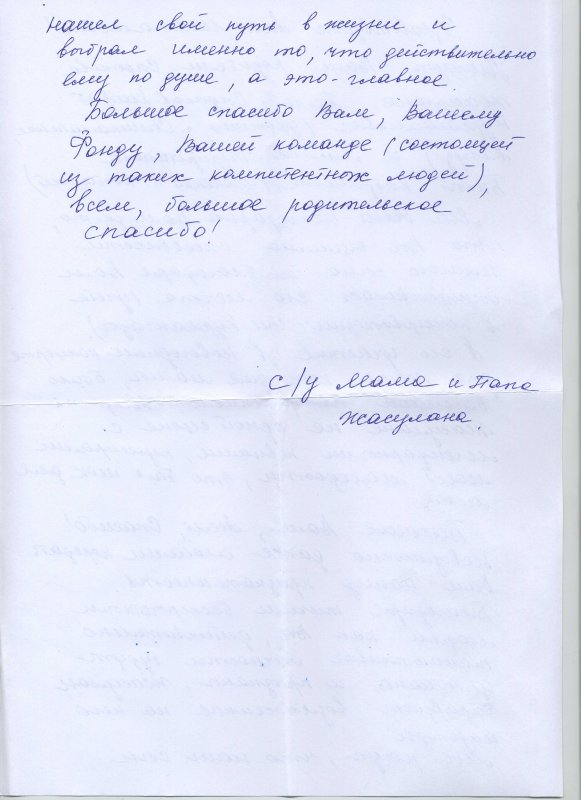 нашел свой путь в жизни и
выбрал именно то, что действительно
ему по душе, а это - главное.
Большое спасибо Вам, Вашему
Фонду, Вашей команде (состоящей
из таких компитентных людей),
всем, большое родительское
спасибо!
с/у Мама и Папа
Жасулана.